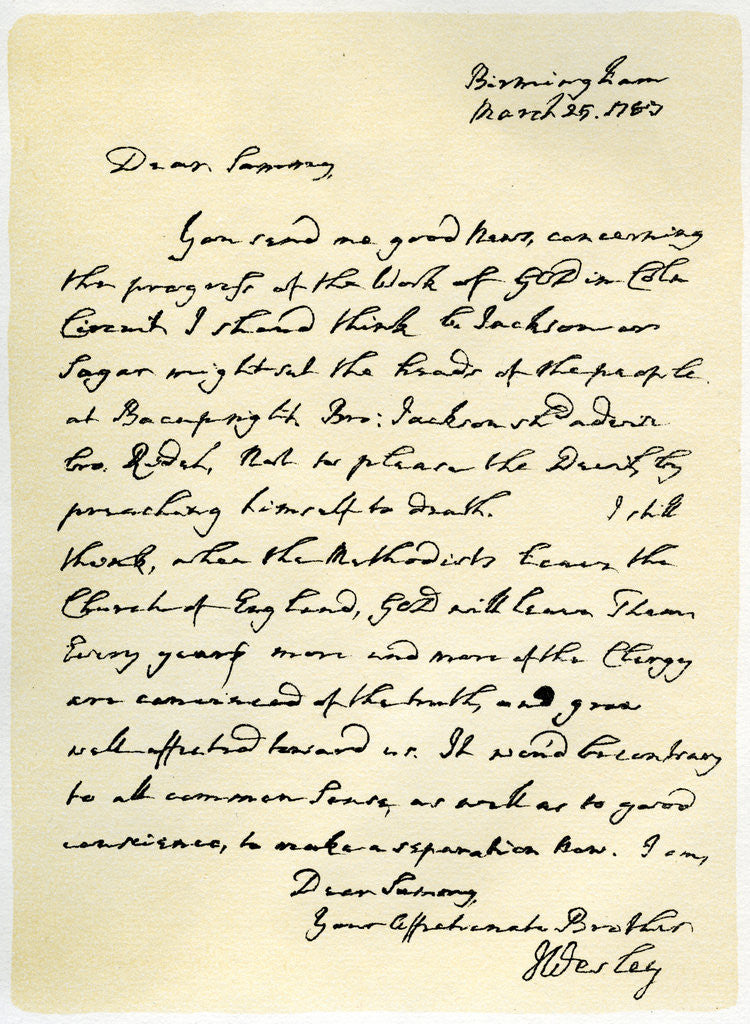 Birmingham
March 25. 1787
Dear Sammy,
You send me good News, concerning
the progress of the Work of GOD in Coln
Circuit. I shoud think br. Jackson or
Sagar might set the heads of the people
at Bacup right. Bro: Jackson shd advise
bro. not to please the Devil, by
preaching himself to death. I still
think, when the Methodists leave the
Church of England, GOD will leave Them.
Every year more and more of the Clergy
are convinced of the truth, and grow
well-affected toward us. It woud be contrary
to all common Sense, as well as to good
conscience, to make a separation now. I am,
Dear Sammy,
Your Affectionate Brother
JWesley